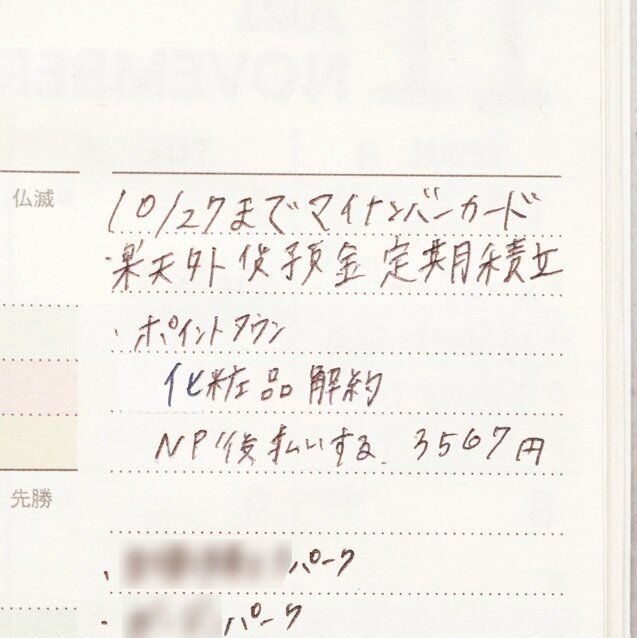 仏滅
10/27までマイナンバーカード
・楽天外貨預金定期積立
・ポイントタウン
化粧品解約
NP後払いする 3567円
先勝
・ パーク
・ パーク